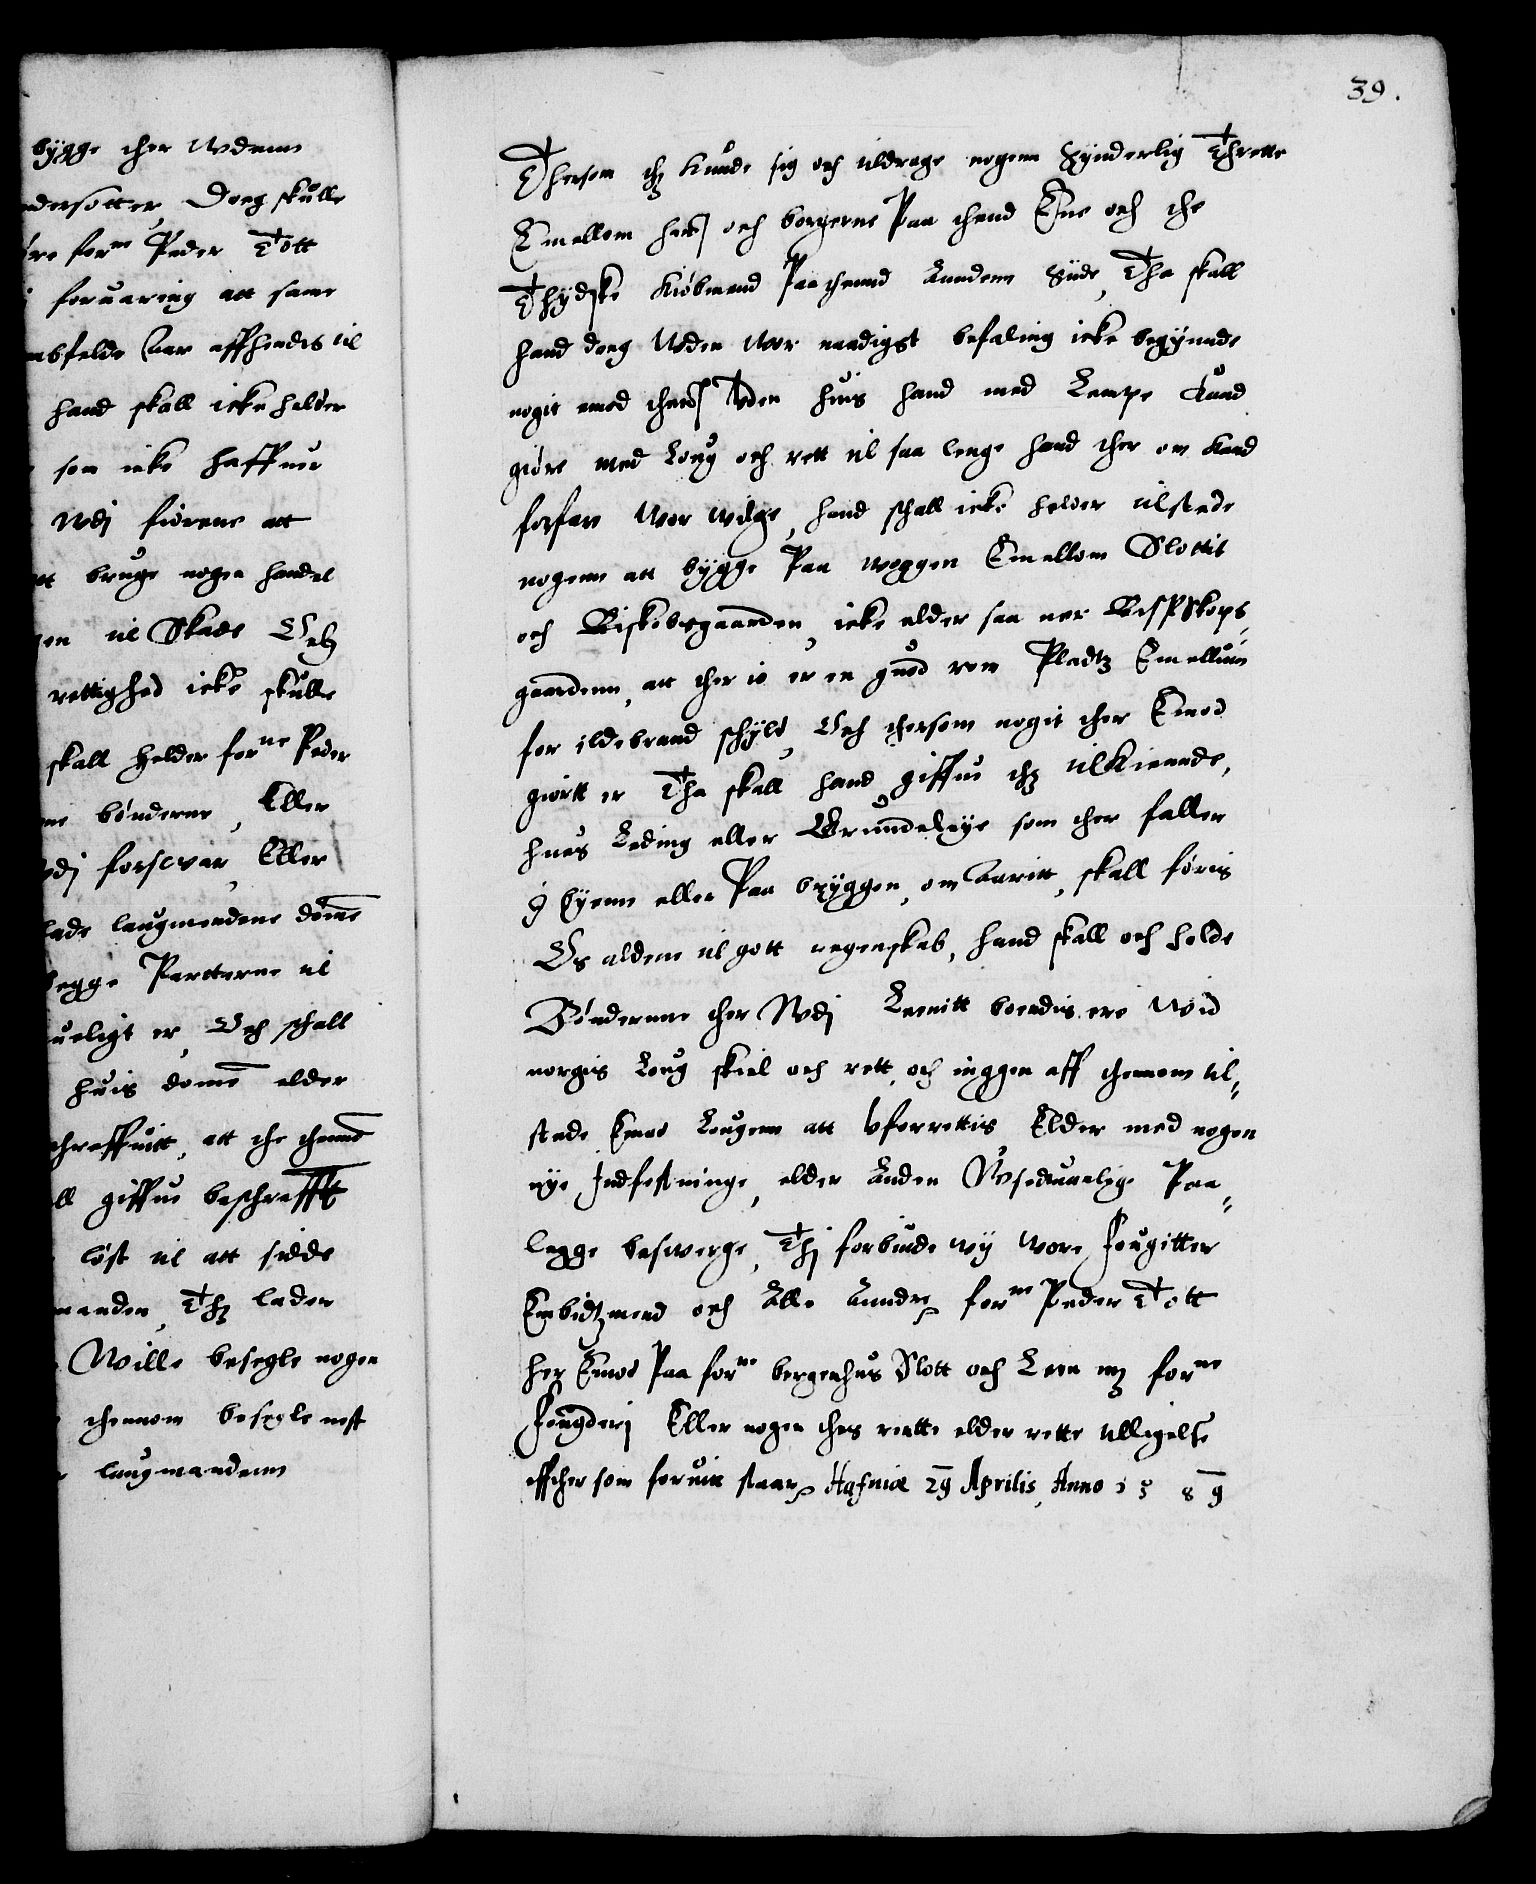 bygge ther Wdenn
dersotter, Dog skulle
re forne Peder Tott
foruaring att same
bfelde Aar affhendis til
hand skall icke heller
som icke haffuer
Wdj fiorene att
tt bruge nogen handel
en til Skade Och
rettighed icke skulle
skall helder forne Peder
ne bønderne, Eller
dj forsvar, Eller
lade laugmendene døme
begge Partterne til
ueligt er, Och schall
huis dome elder
schreffuitt, att the thenne
ll giffue beschrefft
løst til att sidde
manden, Thz lader
Wille besegle nogen
thennom besegle nest
laugmandenn
39.
Thersom thz kunde sig och tildrage nogenn Synderlig Thrette
Emellom hans och borgerne Paa thend Ene och the
Thydske Kiøbmend Paa thennd Anndenn Siide, Tha skall
hand dog Uden Wor naadigst befaling icke begynnde
nogit emod thend Uden huis hand med Lempe Kand
giøre med Loug och rett til saa lenge hand ther om kand
forfare Wor Wilge, hand schall icke helder tilstede
nogenn att bygge Paa Woggen Emellom Slottit
och Biskobsgaarden, icke elder saa ner Bispskops-
gaardenn, att ther io er en guod rom Pladtz Emellum
for ildebrand schyld, Och thersom nogit ther Emod
giortt er Tha skall hand giffue thz tilkiennde,
hues Leding eller Grundeleye som ther faller
y byenn eller Paa bryggen, om Aaritt, skall føris
Os aldene til gott regenskab, hand skall och holde
Bønderne ther Wdj Leenitt boendis ere Wid
norgis Loug skiel och rett, och inggen aff thennom til-
stede Emod Lougenn att Uforrettis Elder med nogen
nye Indfestninge, elder Anden Usedvaanlige Paa-
legge besverge, Thj forbiude wy wore Fougitter
Embidtzmend och Alle Anndre forne Peder Tott
her Emod Paa forne bergenhus Slott och Leen mz forne
Fougderj Eller nogen thes rentte elder rette tilligelse
effther som foruit staar Hafniæ 29 Aprilis, Anno 1589